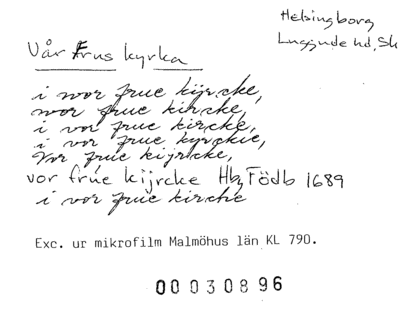 Helsingborg
Luggude hd, Sk
Vår Frus kyrka
i wor frue kijrcke,
wor frue kircke,
i vor frue kircke,
i vor frue kyrckie,
Vor frue kijrcke,
vor frúe kijrcke Hbg Födb 1689
i vor frúe kirche
Exc. ur mikrofilm Malmöhus län KL 790.
00030896